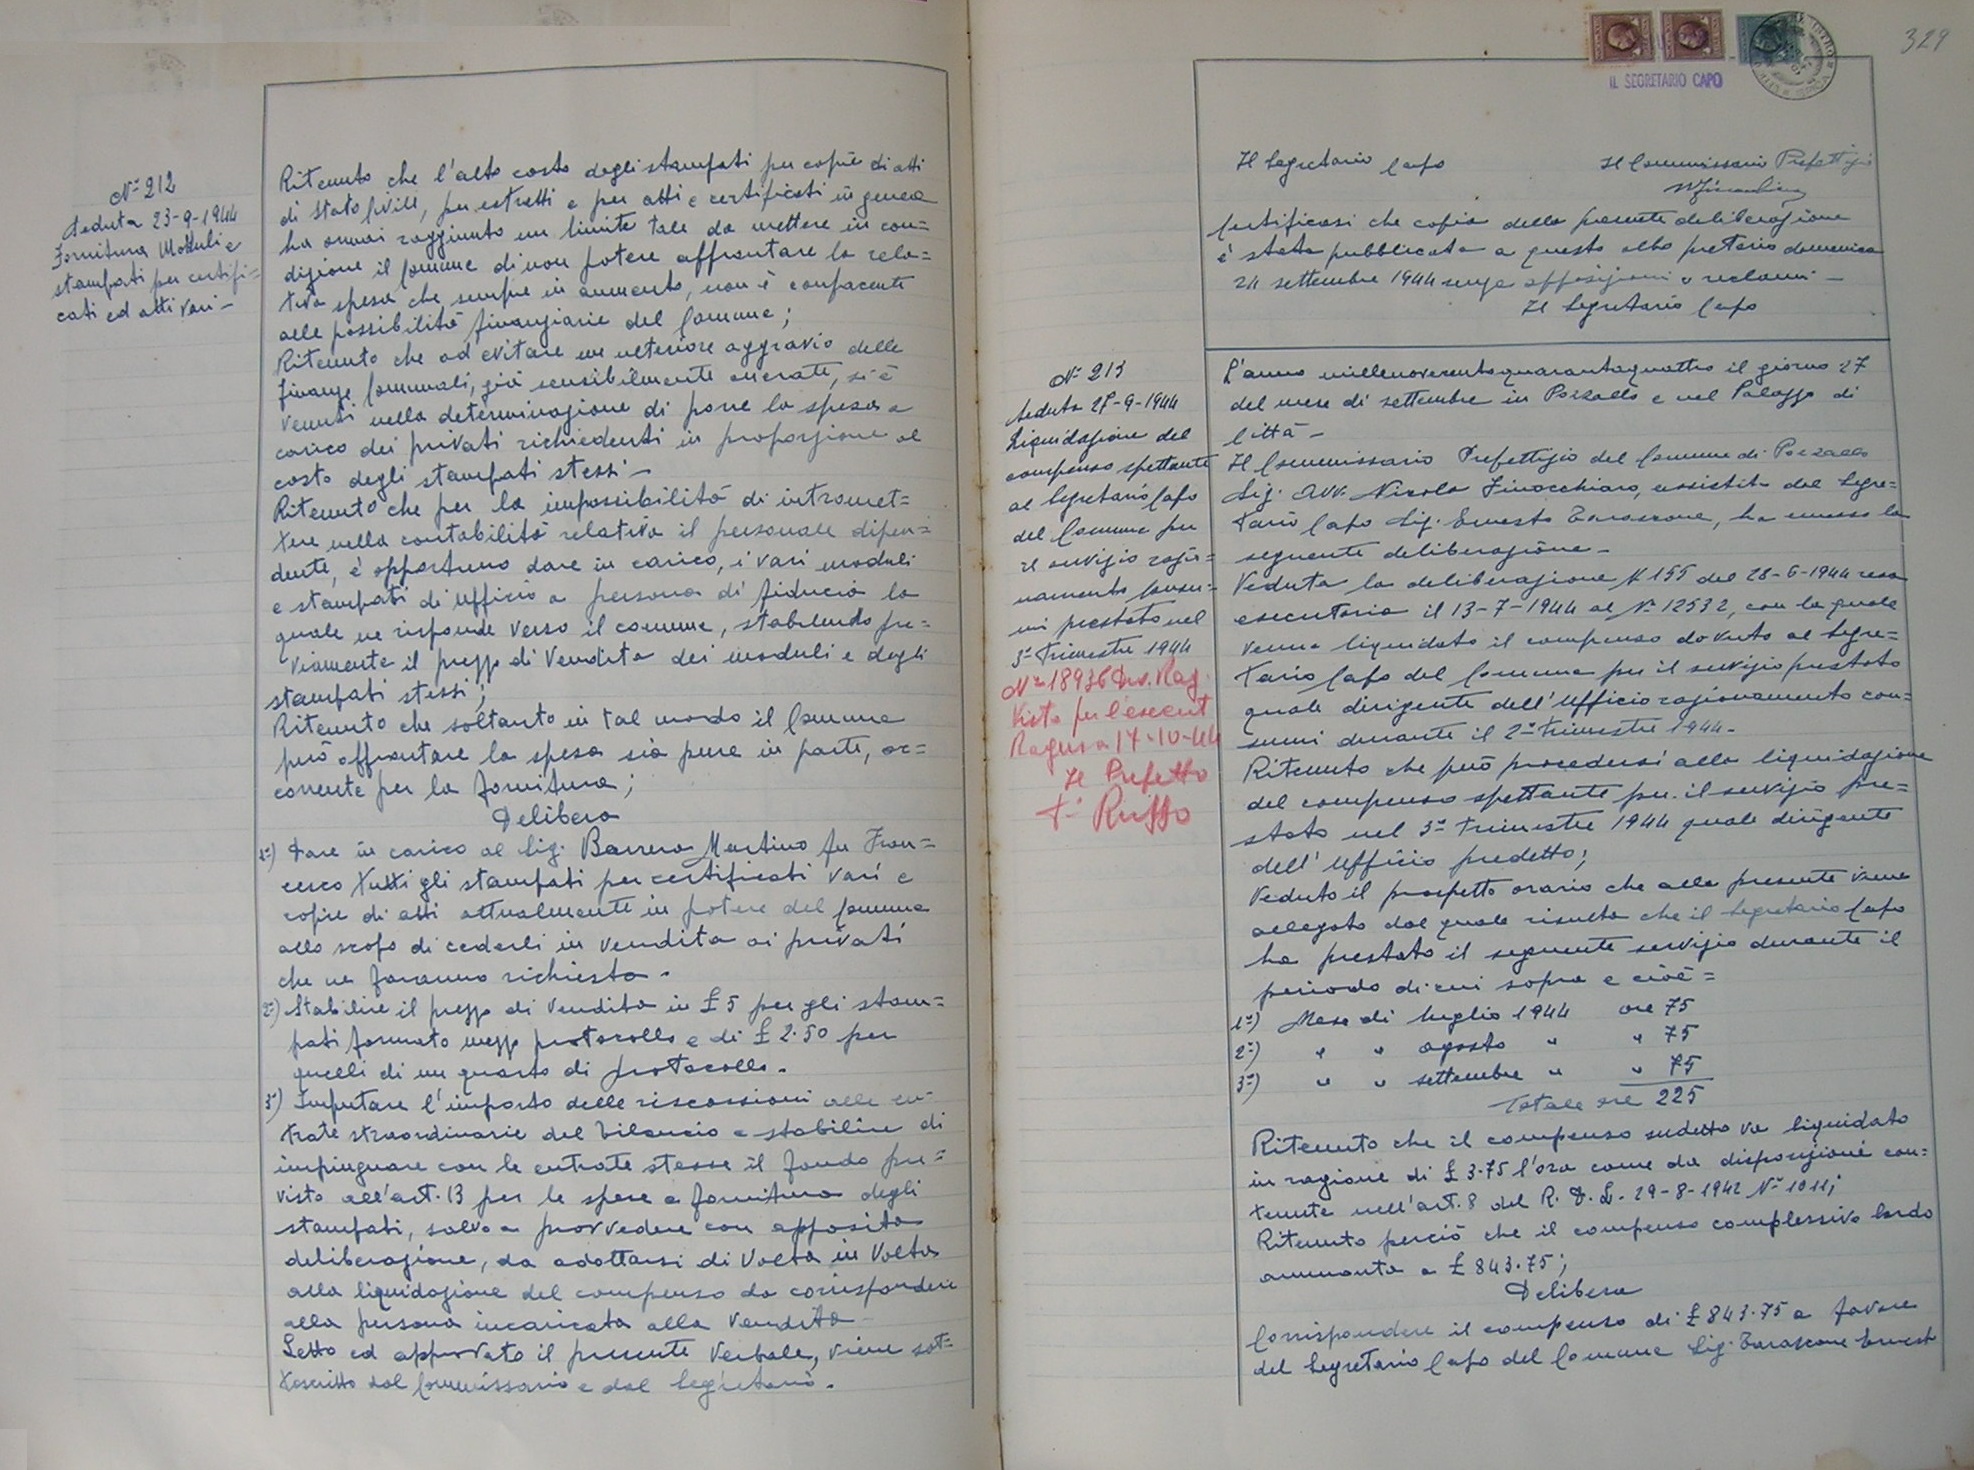 N° 212
Seduta 23-9-1944
Fornitura Moduli e
stampati per certifi=
cati ed atti vari -
Ritenuto che l'alto costo degli stampati per copie di atti
di stato Civile, per estratti e per atti e certificati in genere
ha ormai raggiunto un limite tale da mettere in con=
dizione il Comune di non potere affrontare la rela=
tiva spesa che sempre in aumento, non è confacente
alle possibilità finanziarie del Comune;
Ritenuto che ad evitare un ulteriore aggravio delle
finanze Comunali, già sensibilmente onerate, si è
venuti nella determinazione di porre la spesa a
carico dei privati richiedenti in proporzione al
costo degli stampati stessi -
Ritenuto che per la impossibilità di intromet=
tere nella contabilità relativa il personale dipen=
dente, è opportuno dare in carico, i vari moduli
e stampati di ufficio a persona di fiducia la
quale ne risponde verso il comune, stabilendo pre=
viamente il prezzo di Vendita dei moduli e degli
stampati stessi;
Ritenuto che soltanto in tal modo il Comune
può affrontare la spesa sia pure in parte, oc=
corrente per la fornitura;
Delibera
1°) Dare in carico al Sig. Barrera Martino fu Fran=
cesco tutti gli stampati per certificati vari e
copie di atti attualmente in potere del Comune
allo scopo di cederli in vendita ai privati
che ne faranno richiesta.
2°) Stabilire il prezzo di vendita in £ 5 per gli stam=
pati formato mezzo protocollo e di £ 2.50 per
quelli di un quarto di protocollo.
3°) Imputare l'importo delle riscossioni alle en=
trate straordinarie del bilancio e stabilire di
impinguare con le entrate stesse il fondo pre=
visto all'art. 13 per le spese e fornitura degli
stampati, salvo a provvedere con apposita
deliberazione, da adottarsi di Volta in Volta
alla liquidazione del compenso da corrispondere
alla persona incaricata alla vendita
Letto ed approvato il presente Verbale, viene sot=
toscritto dal Commissario e dal Segretario.
329
IL SEGRETARIO CAPO
Il Segretario Capo Il Commissario Prefettizio
Certificasi che copia della presente deliberazione
è stata pubblicata a questo albo pretorio domenica
24 settembre 1944 senza opposizioni o reclami -
Il Segretario Capo
N° 213
Seduta 27-9-1944
Liquidazione del
compenso spettante
al Segretario Capo
del Comune per
il servizio ragio=
namento consu=
mi prestato nel
3° trimestre 1944
N° 18936 Div. Rag.
Visto per l'esecut
Ragusa 14-10-44
Il Prefetto
Fº Ruffo
L'anno millenovecentoquarantaquattro il giorno 27
del mese di settembre in Pozzallo e nel Palazzo di
Città -
Il Commissario Prefettizio del Comune di Pozzallo
Sig. Avv. Nicola Finocchiaro, assistito dal Segre=
tario Capo Sig. Ernesto Tarascone, ha emesso la
seguente deliberazione -
Veduta la deliberazione N 155 del 28-6-1944 resa
esecutoria il 13-7-1944 al N° 12532, con la quale
venne liquidato il compenso dovuto al Segre=
tario Capo del Comune per il servizio prestato
quale dirigente dell'Ufficio ragionamento con=
sumi durante il 2° trimestre 1944.
Ritenuto che può procedersi alla liquidazione
del compenso spettante per il servizio pre=
stato nel 3° trimestre 1944 quale dirigente
dell'Ufficio predetto;
Veduto il prospetto orario che alla presente viene
allegato dal quale risulta che il Segretario Capo
ha prestato il seguente servizio durante il
periodo di cui sopra e cioè =
1°) Mese di luglio 1944 ore 75
2°) " " agosto " " 75
3°) " " settembre " " 75
Totale ore 225
Ritenuto che il compenso sudetto va liquidato
in ragione di £ 3.75 l'ora come da disposizioni con=
tenute nell'art. 8 del R. D. L. 29-8-1942 N° 1011;
Ritenuto perciò che il compenso complessivo lordo
ammonta a £ 843.75;
Delibera
Corrispondere il compenso di £ 843.75 a favore
del Segretario Capo del Comune Sig. Tarascone Ernest